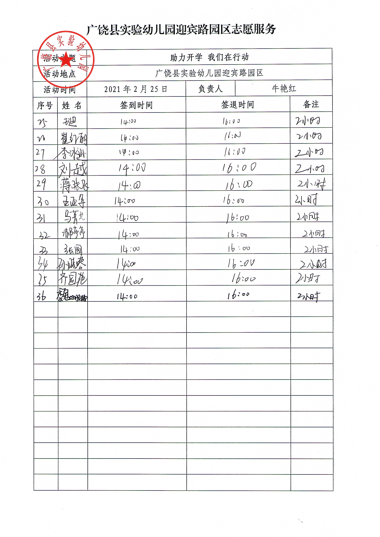 广饶县实验幼儿园迎宾路园区志愿服务
活动主题 助力开学 我们在行动
活动地点 广饶县实验幼儿园迎宾路园区
活动时间 2021年2月25日 负责人 牛艳红
序号 姓名 签到时间 签退时间 备注
25 14:00 16:00 2小时
26 14:00 16:00 2小时
27 14:00 16:00 2小时
28 14:00 16:00 2小时
29 14:00 16:00 2小时
30 14:00 16:00 2小时
31 14:00 16:00 2小时
32 14:00 16:00 2小时
33 14:00 16:00 2小时
34 14:00 16:00 2小时
35 14:00 16:00 2小时
36 14:00 16:00 2小时